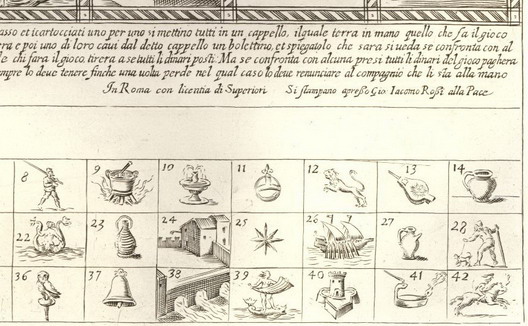 asso et icartocciati uno per uno si mettino tutti in un cappello, il quale terra in mano quello che fa il gioco
ra e poi uno di loro caui dal detto cappello un bolettino, et spiegatolo che sara si ueda se confronta con al
e chi fara il gioco tirera a se tutti li dinari posti. Ma se confronta con alcuna presi tutti li dinari del gioco paghera
mpre lo deue tenere finche una uolta perde nel qual caso lo deve renunciare al compagnio che li sta alla mano
In Roma con licentia di Superiori Si stampano apresso Gio Iacomo Rossi alla Pace
8 9 10 11 12 13 14
22 23 24 25 26 27 28
36 37 38 39 40 41 42